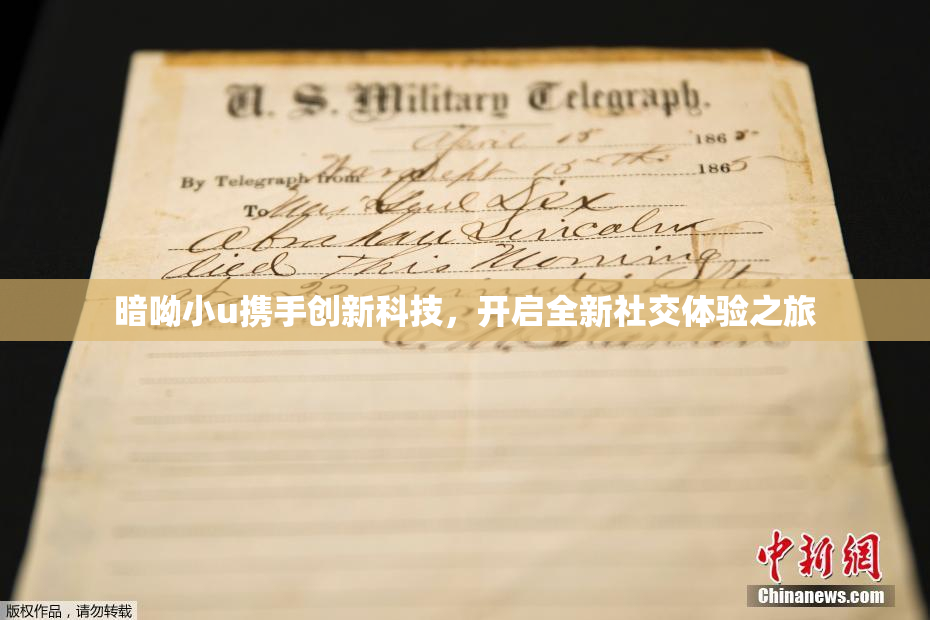 U. S. Military Telegraph.
April 15 1865
By Telegraph from War Dept 15th 1865
To Maj Genl Dix
Abraham Lincoln
died This Morning
22 minutes after
暗呦小u携手创新科技，开启全新社交体验之旅
中新網
Chinanews.com
版权作品，请勿转载